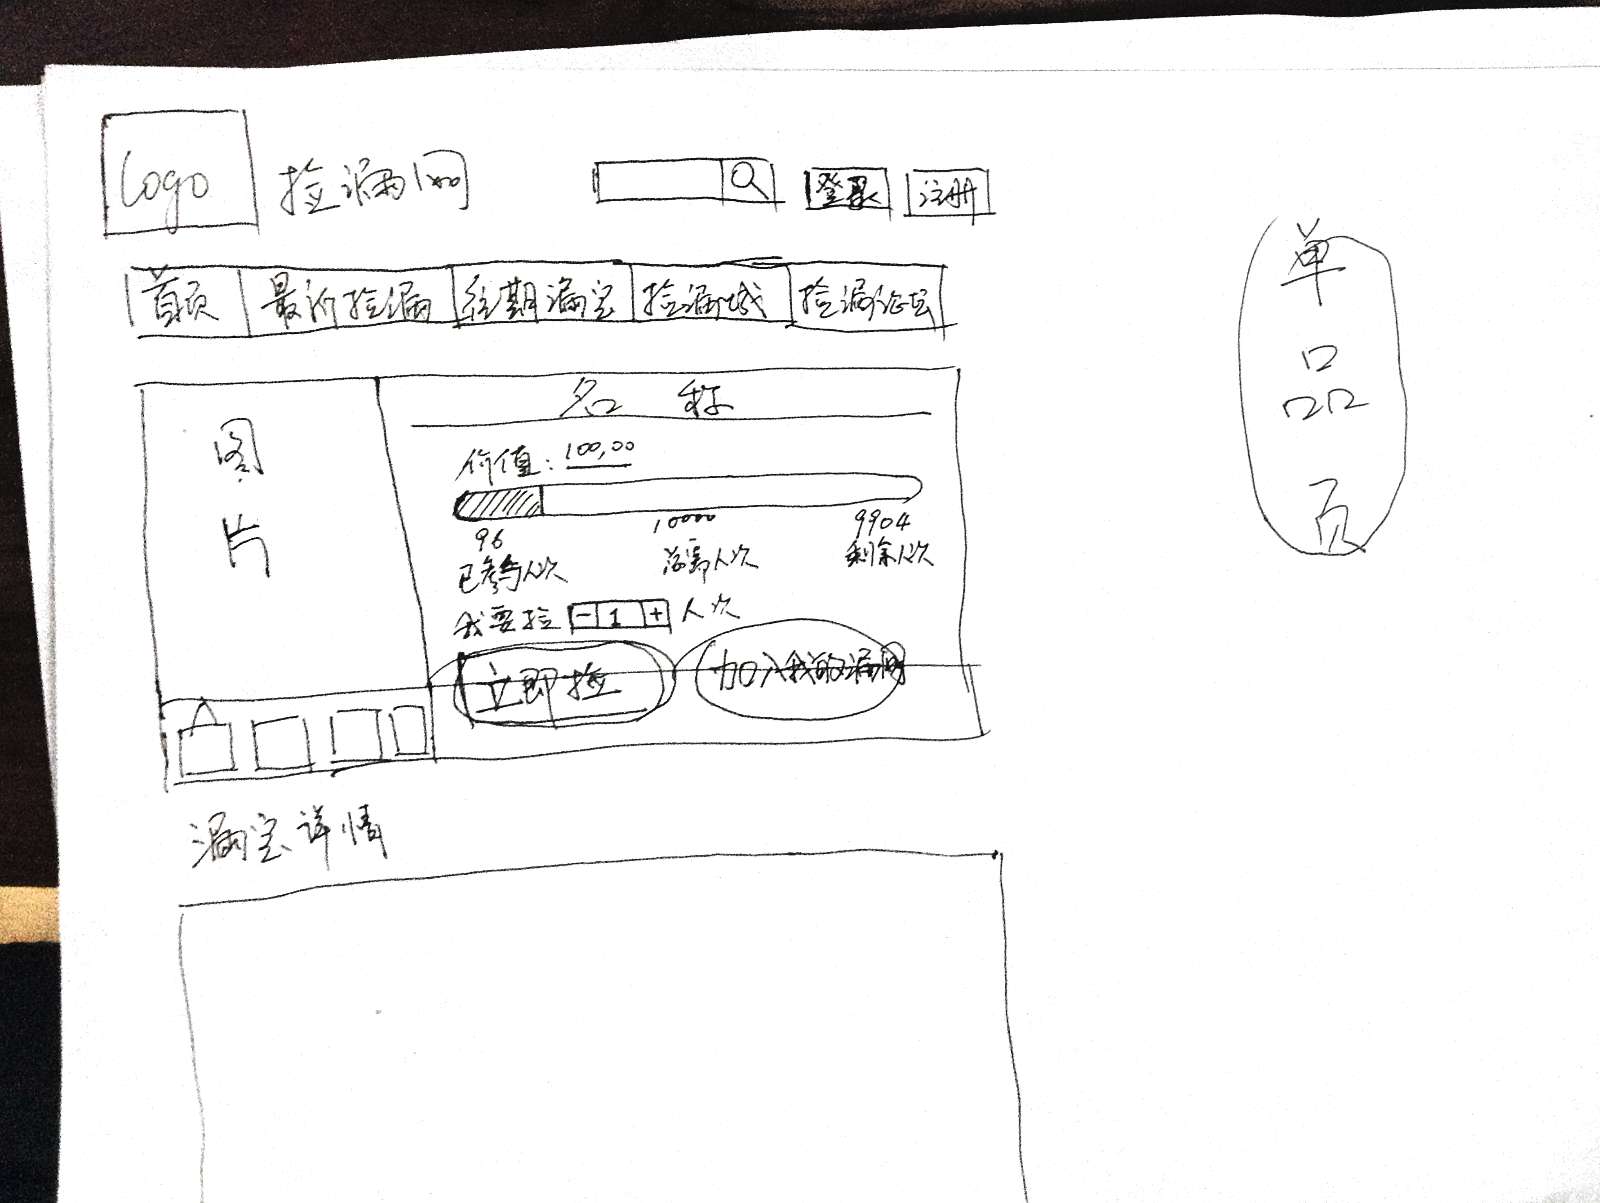 Logo 捡漏网 登录 注册
首页 最新捡漏 往期漏宝 捡漏城 捡漏论坛
单品页
图片
名称
价值：100,00
96 10000 9904
已参与人次 总需人次 剩余人次
我要捡 - 1 + 人次
立即捡 加入我的漏网
漏宝详情